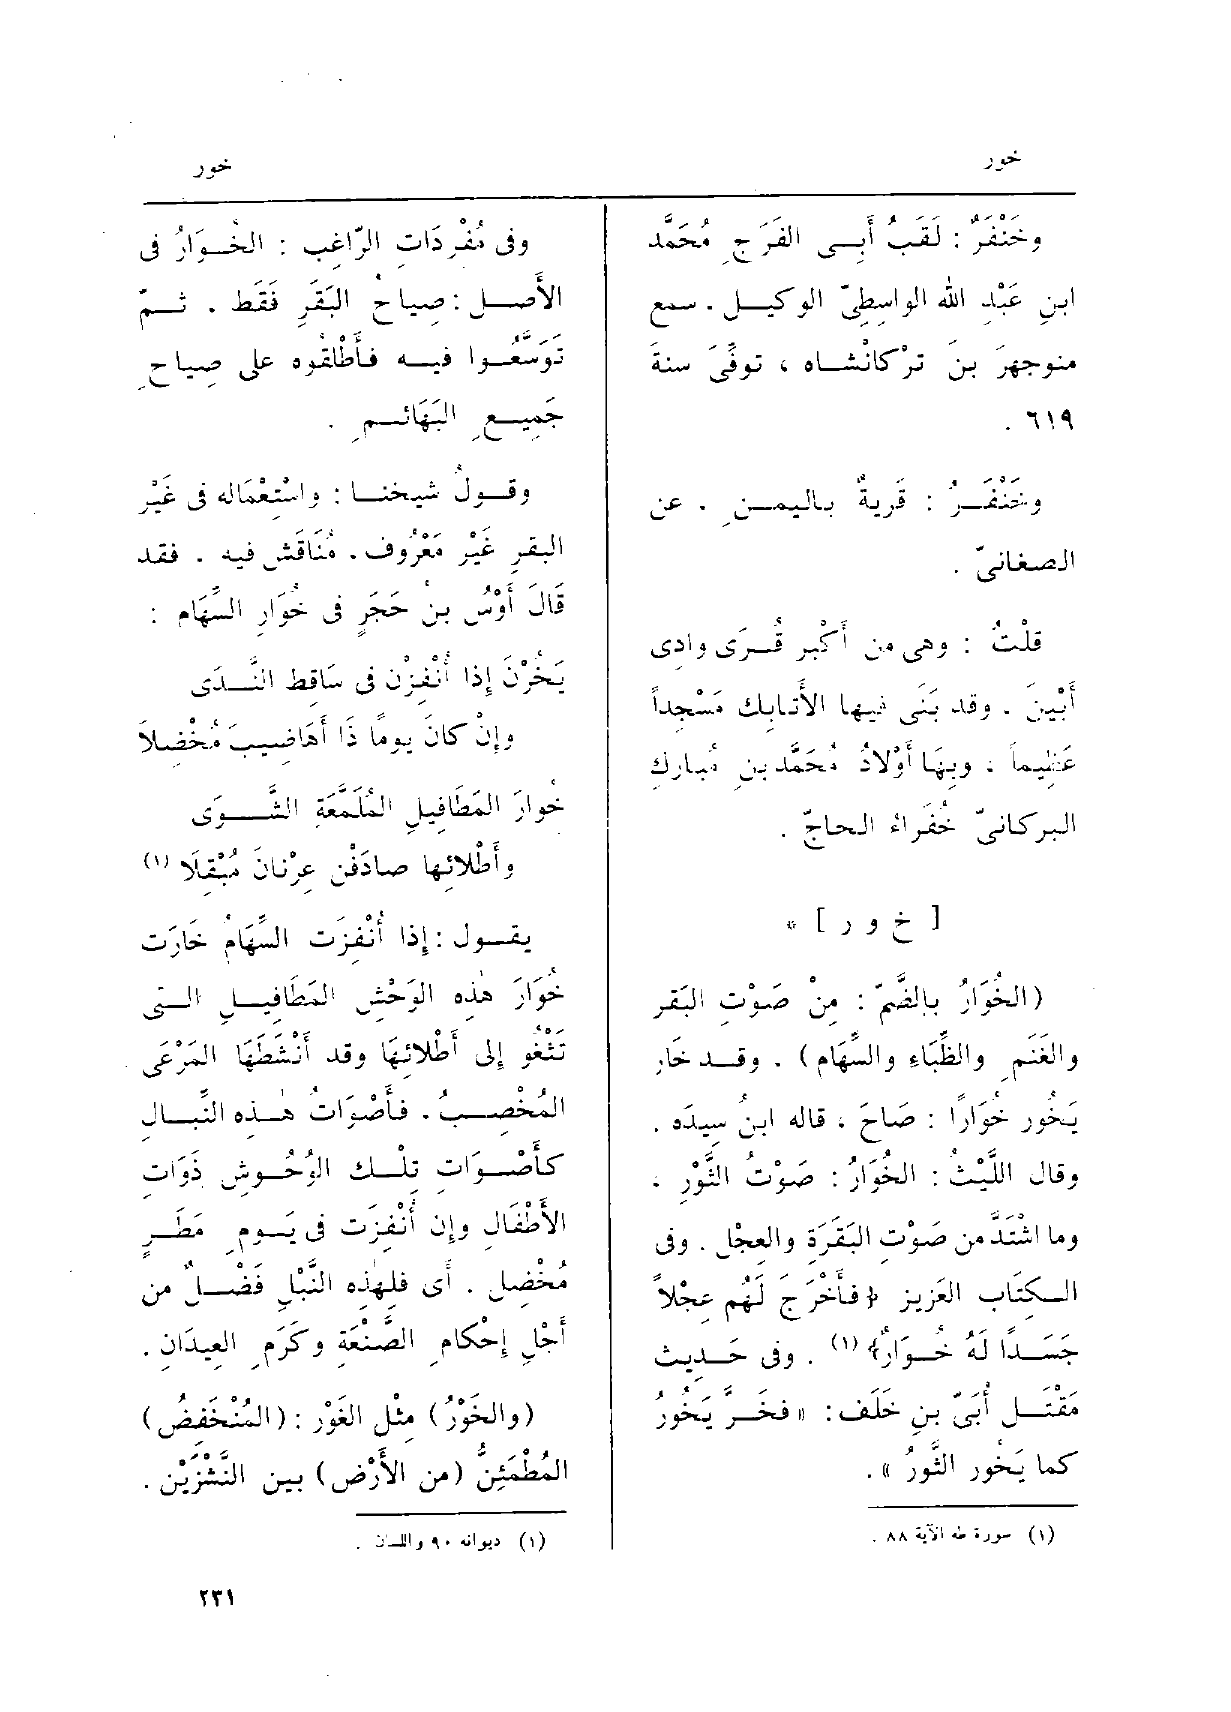 خور
خور
وخَنْفَرٌ : لَقَبُ أَبِى الفَرَجِ مُحَمَّد
ابنِ عَبْدِ الله الواسِطِىّ الوكيل . سمع
منوجهرَ بنَ تُرْكَانْشاه ، توفِّىَ سنةَ
٦١٩ .
وخَنْفَرُ : قَريةٌ باليمنِ . عن
الصغانىّ .
قلْتُ : وهى من أَكْبرِ قُرَى وادِى
أَبْينَ . وقد بَنَى فيها الأَتابك مَسْجِداً
عَظِيماً ، وبِهَا أَوْلادُ مُحَمَّد بنِ مُبارك
البركانىّ خُفَراءُ الحاجّ .
[ خ و ر ] *
(الخُوَارُ بالضّمّ : مِنْ صَوْتِ البَقَر
والغَنَمِ والظِّبَاءِ والسِّهَام) . وقد خَار
يَخُور خُوَارًا : صَاحَ ، قاله ابنُ سِيدَه .
وقال اللَّيْثُ : الخُوَارُ : صَوْتُ الثَّوْرِ ،
وما اشتَدَّ من صَوْتِ البَقَرَةِ والعِجْل . وفى
الكِتَاب العَزِيز ﴿فأَخْرَجَ لَهُم عِجْلاً
جَسَدًا لَهُ خُوَارٌ﴾ (١) . وفى حَدِيث
مَقْتَل أُبَىّ بنِ خَلَف : « فخَرَّ يَخُورُ
كما يَخُور الثَّورُ » .
(١) سورة طه الآية ٨٨ .
وفى مُفْرَدَاتِ الرّاغِبِ : الخُوَارُ فى
الأَصل : صِياحُ البَقَرِ فَقَط . ثمّ
تَوَسَّعُوا فيه فأَطْلَقُوه على صِياحِ
جَمِيعِ البَهَائمِ .
وقولُ شيخنا : واسْتِعْمَاله فى غَيْرِ
البقرِ غَيْر مَعْرُوف . مُنَاقَش فيه . فقد
قَالَ أَوْسُ بنُ حَجَرٍ فى خُوَارِ السِّهَام :
يَخُرْنَ إِذا أُنْفِزْن فى سَاقِط النَّدَى
وإِنْ كانَ يومًا ذَا أَهَاضِيبَ مُخْضِلاَ
خُوارَ المَطَافِيلِ المُلَمَّعَةِ الشَّوَى
وأَطْلائِها صادَفْن عِرْنَانَ مُبْقِلَا (١)
يقول : إِذا أُنْفِزَت السِّهَامُ خارَت
خُوَارَ هذِه الوَحْشِ المَطَافِيلِ التى
تَثْغُو إِلى أَطْلائِهَا وقد أَنْشَطَهَا المَرْعَى
المُخْصِبُ . فأَصْوَاتُ هذه النِّبال
كأَصْوَاتِ تِلْك الوُحُوشِ ذَوَاتِ
الأَطْفَال وإِن أُنْفِزَت فى يَومِ مَطَرٍ
مُخْضِل . أَى فلِهٰذِه النَّبْلِ فَضْلٌ من
أَجْلِ إِحْكامِ الصَّنْعَة وكَرَمِ العِيدَانِ .
(والخَوْرُ) مِثْل الغَوْرِ : (المُنْخَفِضُ)
المُطْمَئِنُّ (من الأَرْض) بين النَّشْزَيْن .
(١) ديوانه ٩٠ واللسان .
٢٣١